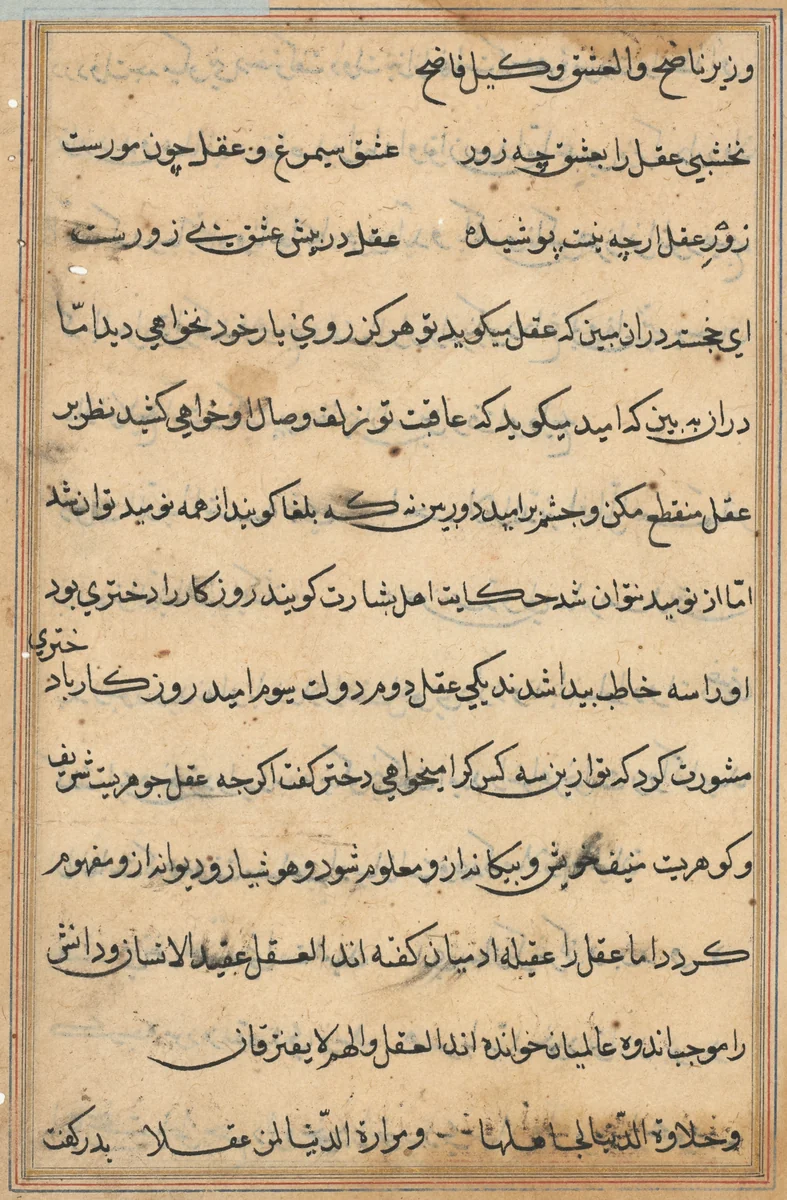 وزیر ناضح والعشق وکیل فاضح
نخشبی عقل را بعشق چه زور عشق سیمرغ و عقل چون مورست
زور عقل ارچه نیست پوشیده عقل در پیش عشق بی زورست
ای خجسته دران مبین که عقل میکوید تو هرکز روی یار خود نخواهی دید امّا
دران به بین که امید میکوید که عاقبت تو زلف وصال او خواهی کشید نظر بر
عقل منقطع مکن و چشم بر امید دوربین نه که بلغا کویند از همه نومید توان شد
امّا از نومید نتوان شد حکایت اهل بشارت کویند روزکار را دختری بود
او را سه خاطب پیدا شدند یکی عقل دوم دولت سوم امید روزکار با دختری
مشورت کرد که تو ازین سه کس کرا میخواهی دختر کفت اکرجه عقل جوهریت شریف
و کوهریت منیف خویش و بیکانه ازو معلوم شود و هوشیار و دیوانه ازو مفهوم
کردد اما عقل را عقیله ادمیان کفته اند العقل عقید الانسان و دانش
را موجب اندوه عالمیان خوانده اند العقل والهم لا یفترقان
وحلاوة الدّنیا لجاهلها ومرارة الدّنیا لمن عقلا پدر کفت